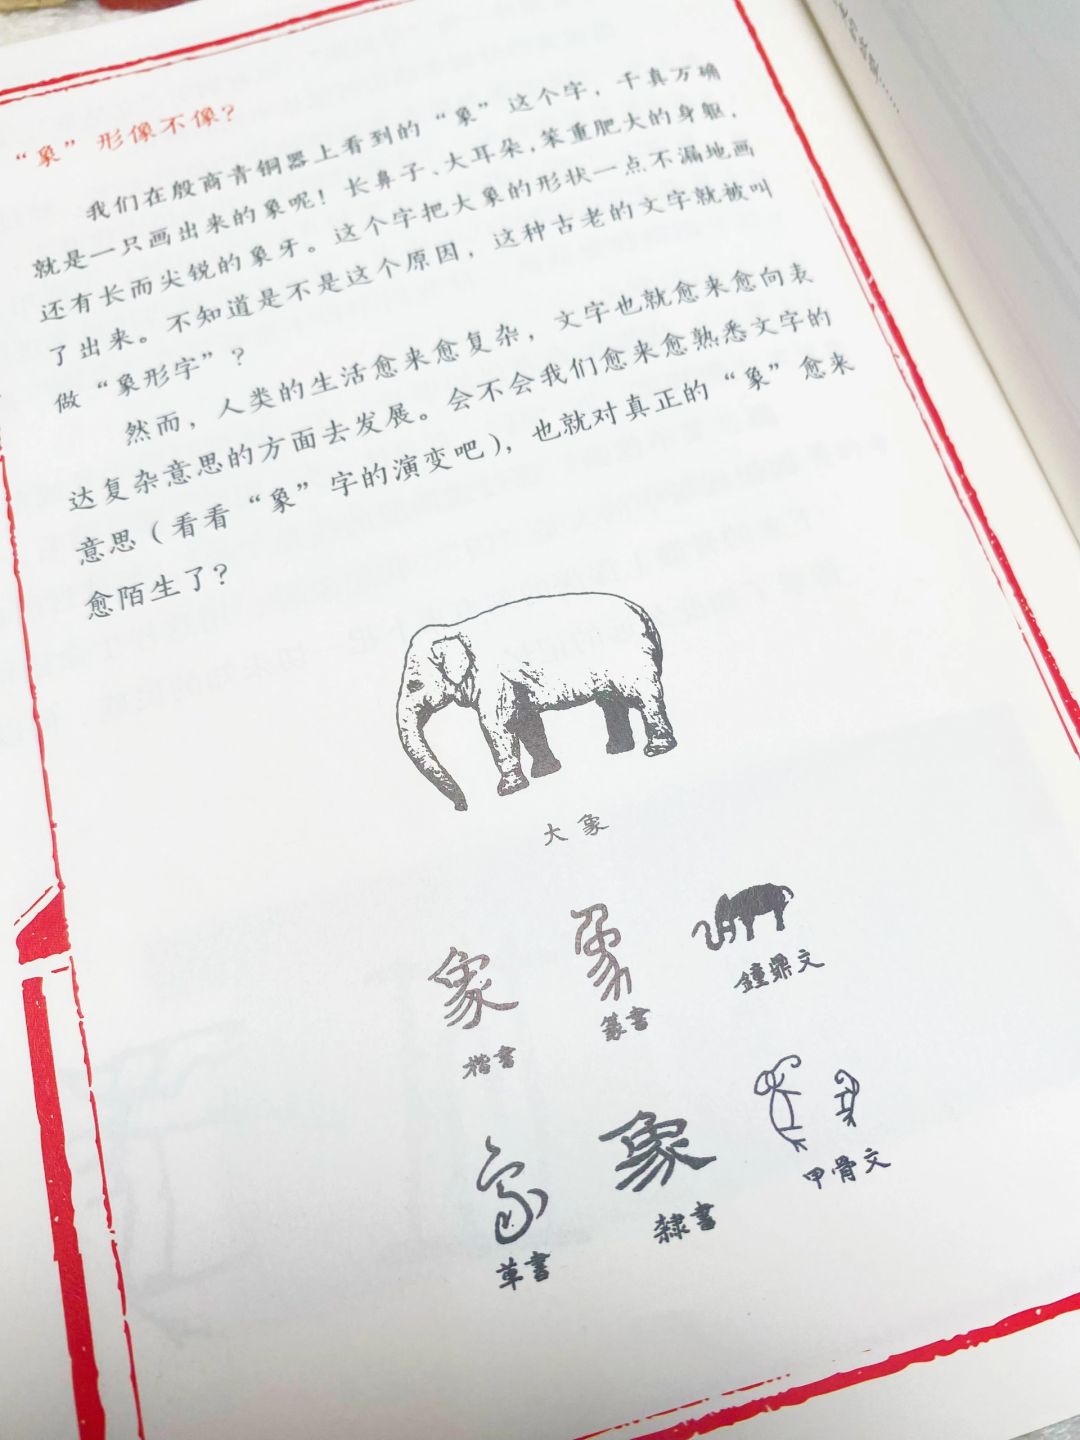 “象”形像不像？
我们在殷商青铜器上看到的“象”这个字，千真万确
就是一只画出来的象呢！长鼻子、大耳朵，笨重肥大的身躯，
还有长而尖锐的象牙。这个字把大象的形状一点不漏地画
了出来。不知道是不是这个原因，这种古老的文字就被叫
做“象形字”？
然而，人类的生活愈来愈复杂，文字也就愈来愈向表
达复杂意思的方面去发展。会不会我们愈来愈熟悉文字的
意思（看看“象”字的演变吧），也就对真正的“象”愈来
愈陌生了？
大象
象
象
鐘鼎文
篆書
楷書
象
象
甲骨文
隸書
草書